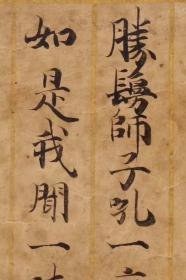 勝鬘師子吼一
如是我聞一